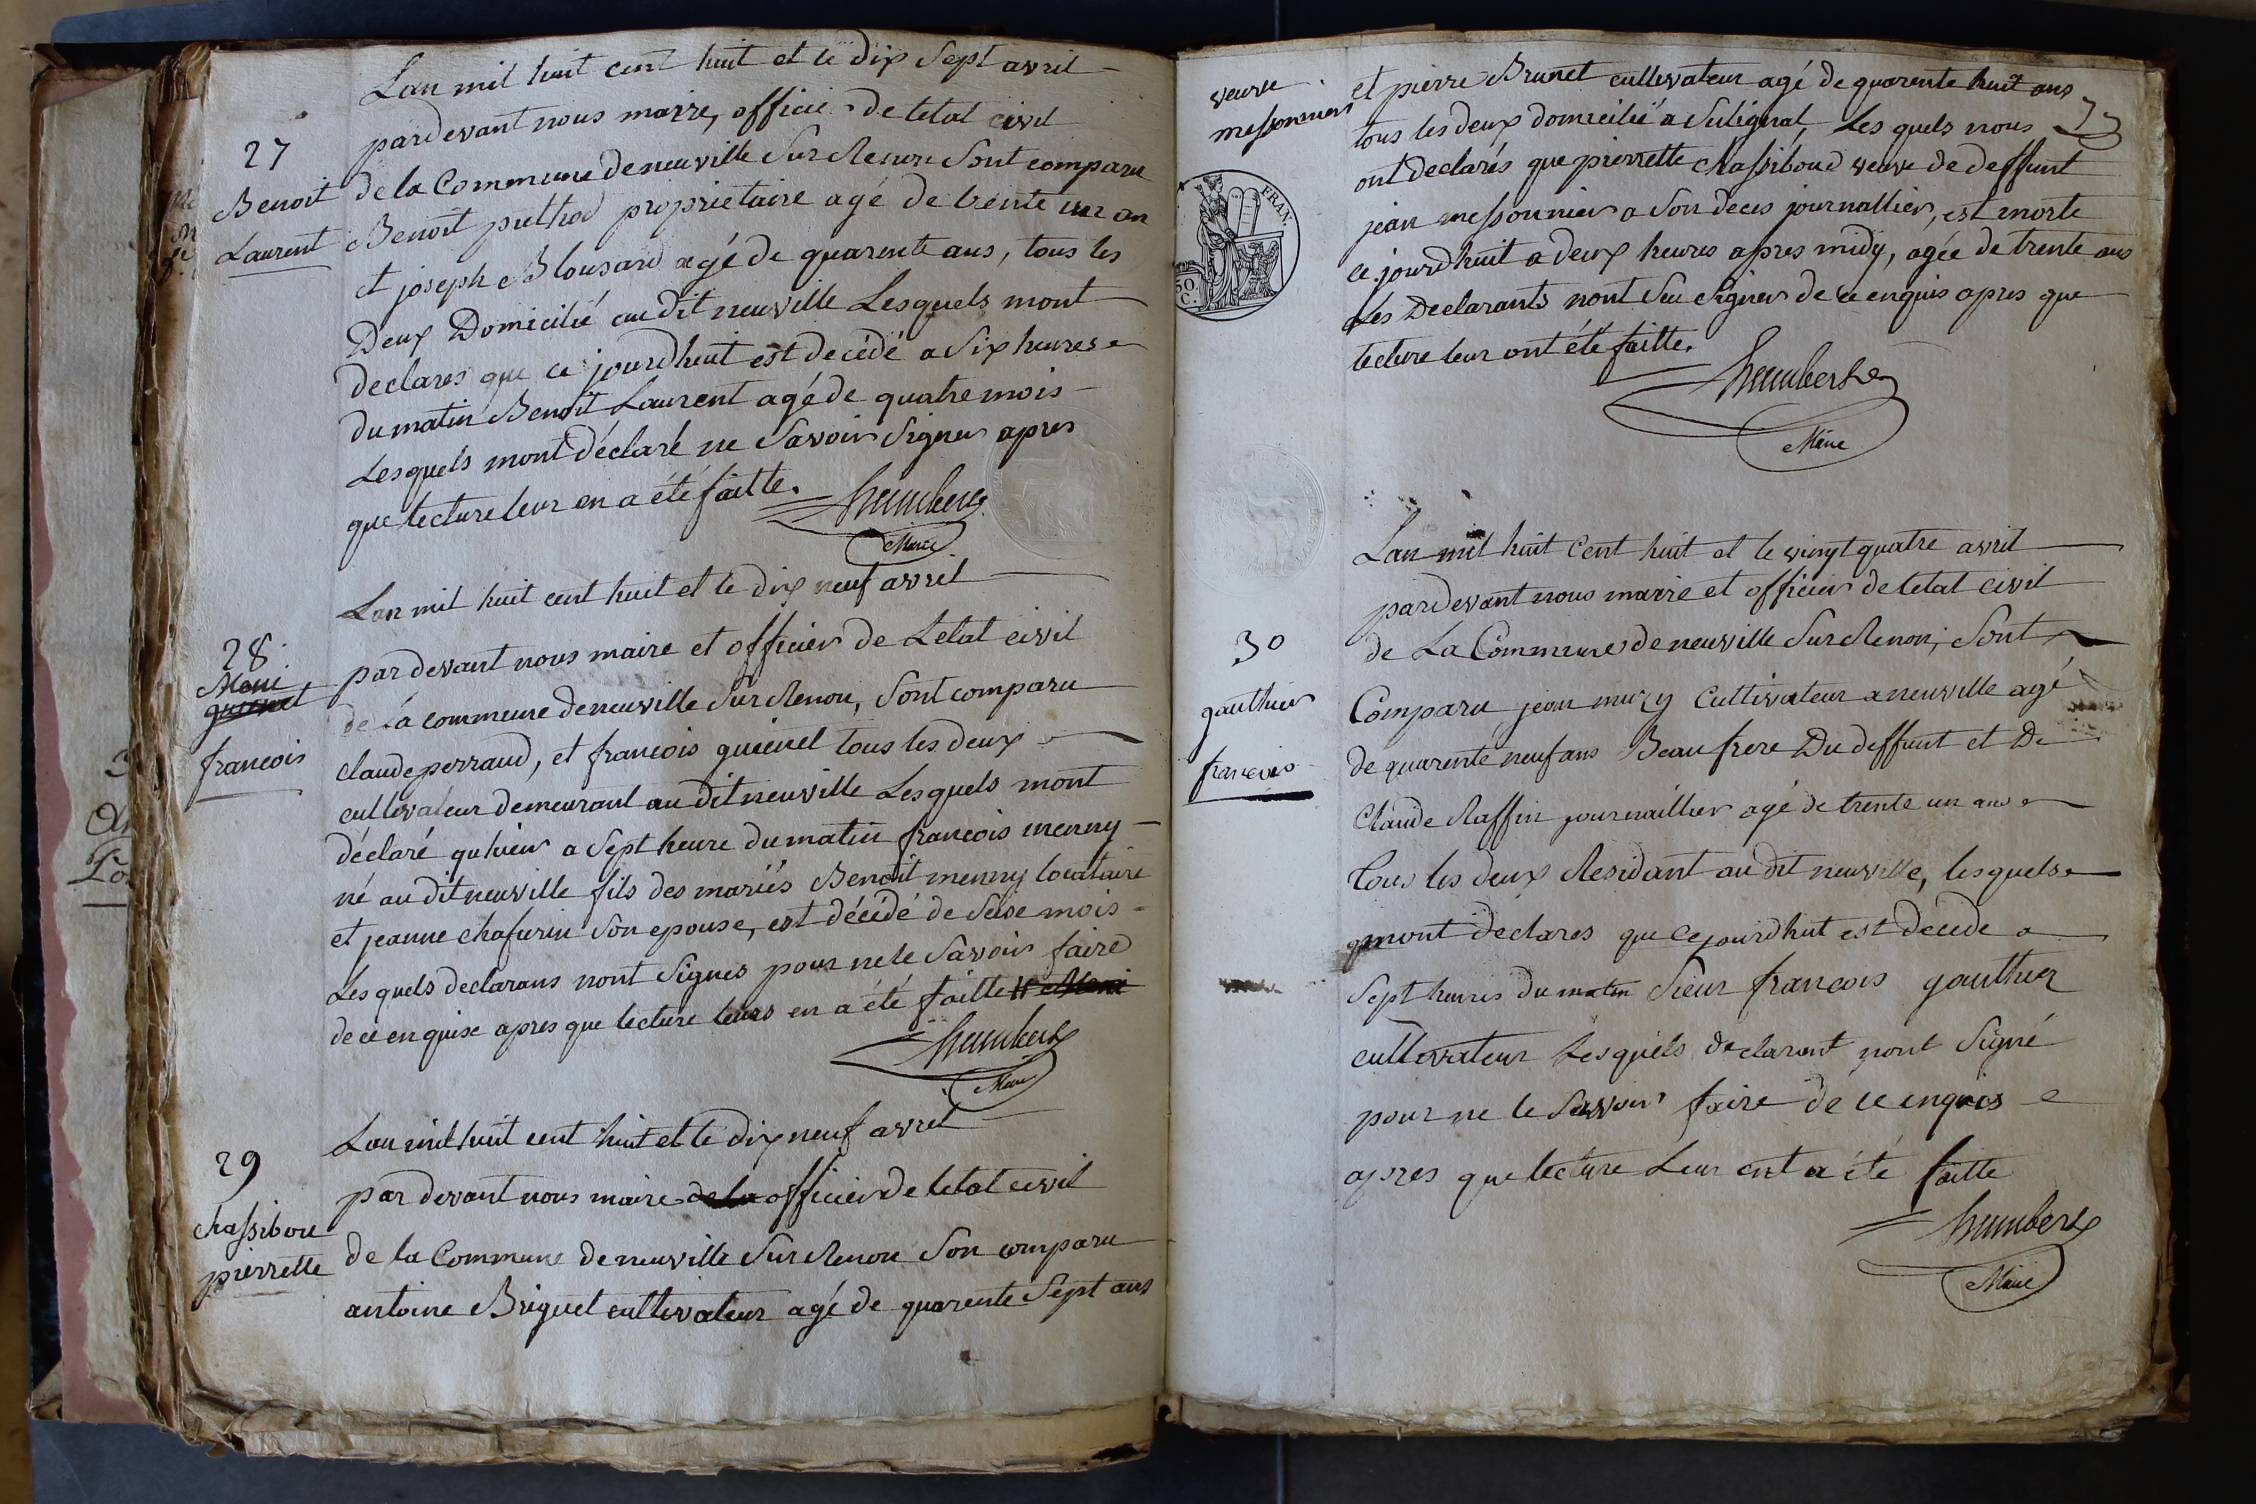 Lan mil huit cent huit et le dix Sept avril
pardevant nous maire, officié de letat civil
27
Benoit
Laurent
de la Commune de neuville Sur Renon Sont comparu
Benoit puthod propriétaire agé de trente un an
et joseph Blousard agé de quarente ans, tous les
Deux Domicilié au dit neuville Lesquels mont
declares que ce jourdhuit est decédé a Six heures
du matin Benoit Laurent agé de quatre mois
Lesquels mont déclaré ne Savoir Signer apres
que lecture leur en a été faitte.
humbert
Maire
Lan mil huit cent huit et le dix neuf avril
28
Meni
guienet
francois
par devant nous maire et officier de Letat civil
de la commeune de neuville Sur Renon, Sont comparu
claude perraud, et francois guienet tous les deux
cultivateur demeurant au dit neuville Lesquels mont
déclaré quhier a Sept heure du matin francois menny
né au dit neuville fils des mariés Benoit menny locataire
et jeanne chafurin Son epouse, est décédé de Seise mois
Les quels declarans nont Signés pour ne le Savoir faire
de ce en quise apres que lecture leurs en a été faitte
humbert
Maire
Lan mil huit cent huit et le dix neuf avril
29
chassibou
pierrette
par devant nous maire de la officier de letat civil
de la Commune de neuville Sur Renon Son comparu
antoine Briguet cultivateur agé de quarente Sept ans
veuve
messonnier
et pierre Brunet cultivateur agé de quarente huit ans
tous les deux domicilié a Sulignat, Les quels nous
ont declarés que pierrette chassiboud veuve de deffunt
jean messonnier a Son deces journallier, est morte
ce jourdhuit a deux heures apres midy, agée de trente ans
Les Declarants nont Seu Signer de ce enquis apres que
lecture leur ont été faitte.
FRAN.
50
C.
humbert
Maire
Lan mil huit Cent huit et le vingt quatre avril
pardevant nous maire et officier de letat civil
30
gauthier
francois
de La Commune de neuville Sur Renon, Sont
Comparu jean murzy Cultivateur a neuville agé
de quarente neuf ans Beau frere Du deffunt et De
Claude Raffin journaillier agé de trente un ans
Tous les deux Residant au dit neuville, lesquels
mont déclares que ce jourdhut est decede a
Sept heures du matin Sieur francois gauthier
cultivateur Lesquels declarant nont Signé
pour ne le Savoir faire de ce enquis
apres que lecture Leur ent a été faitte
humbert
Maire